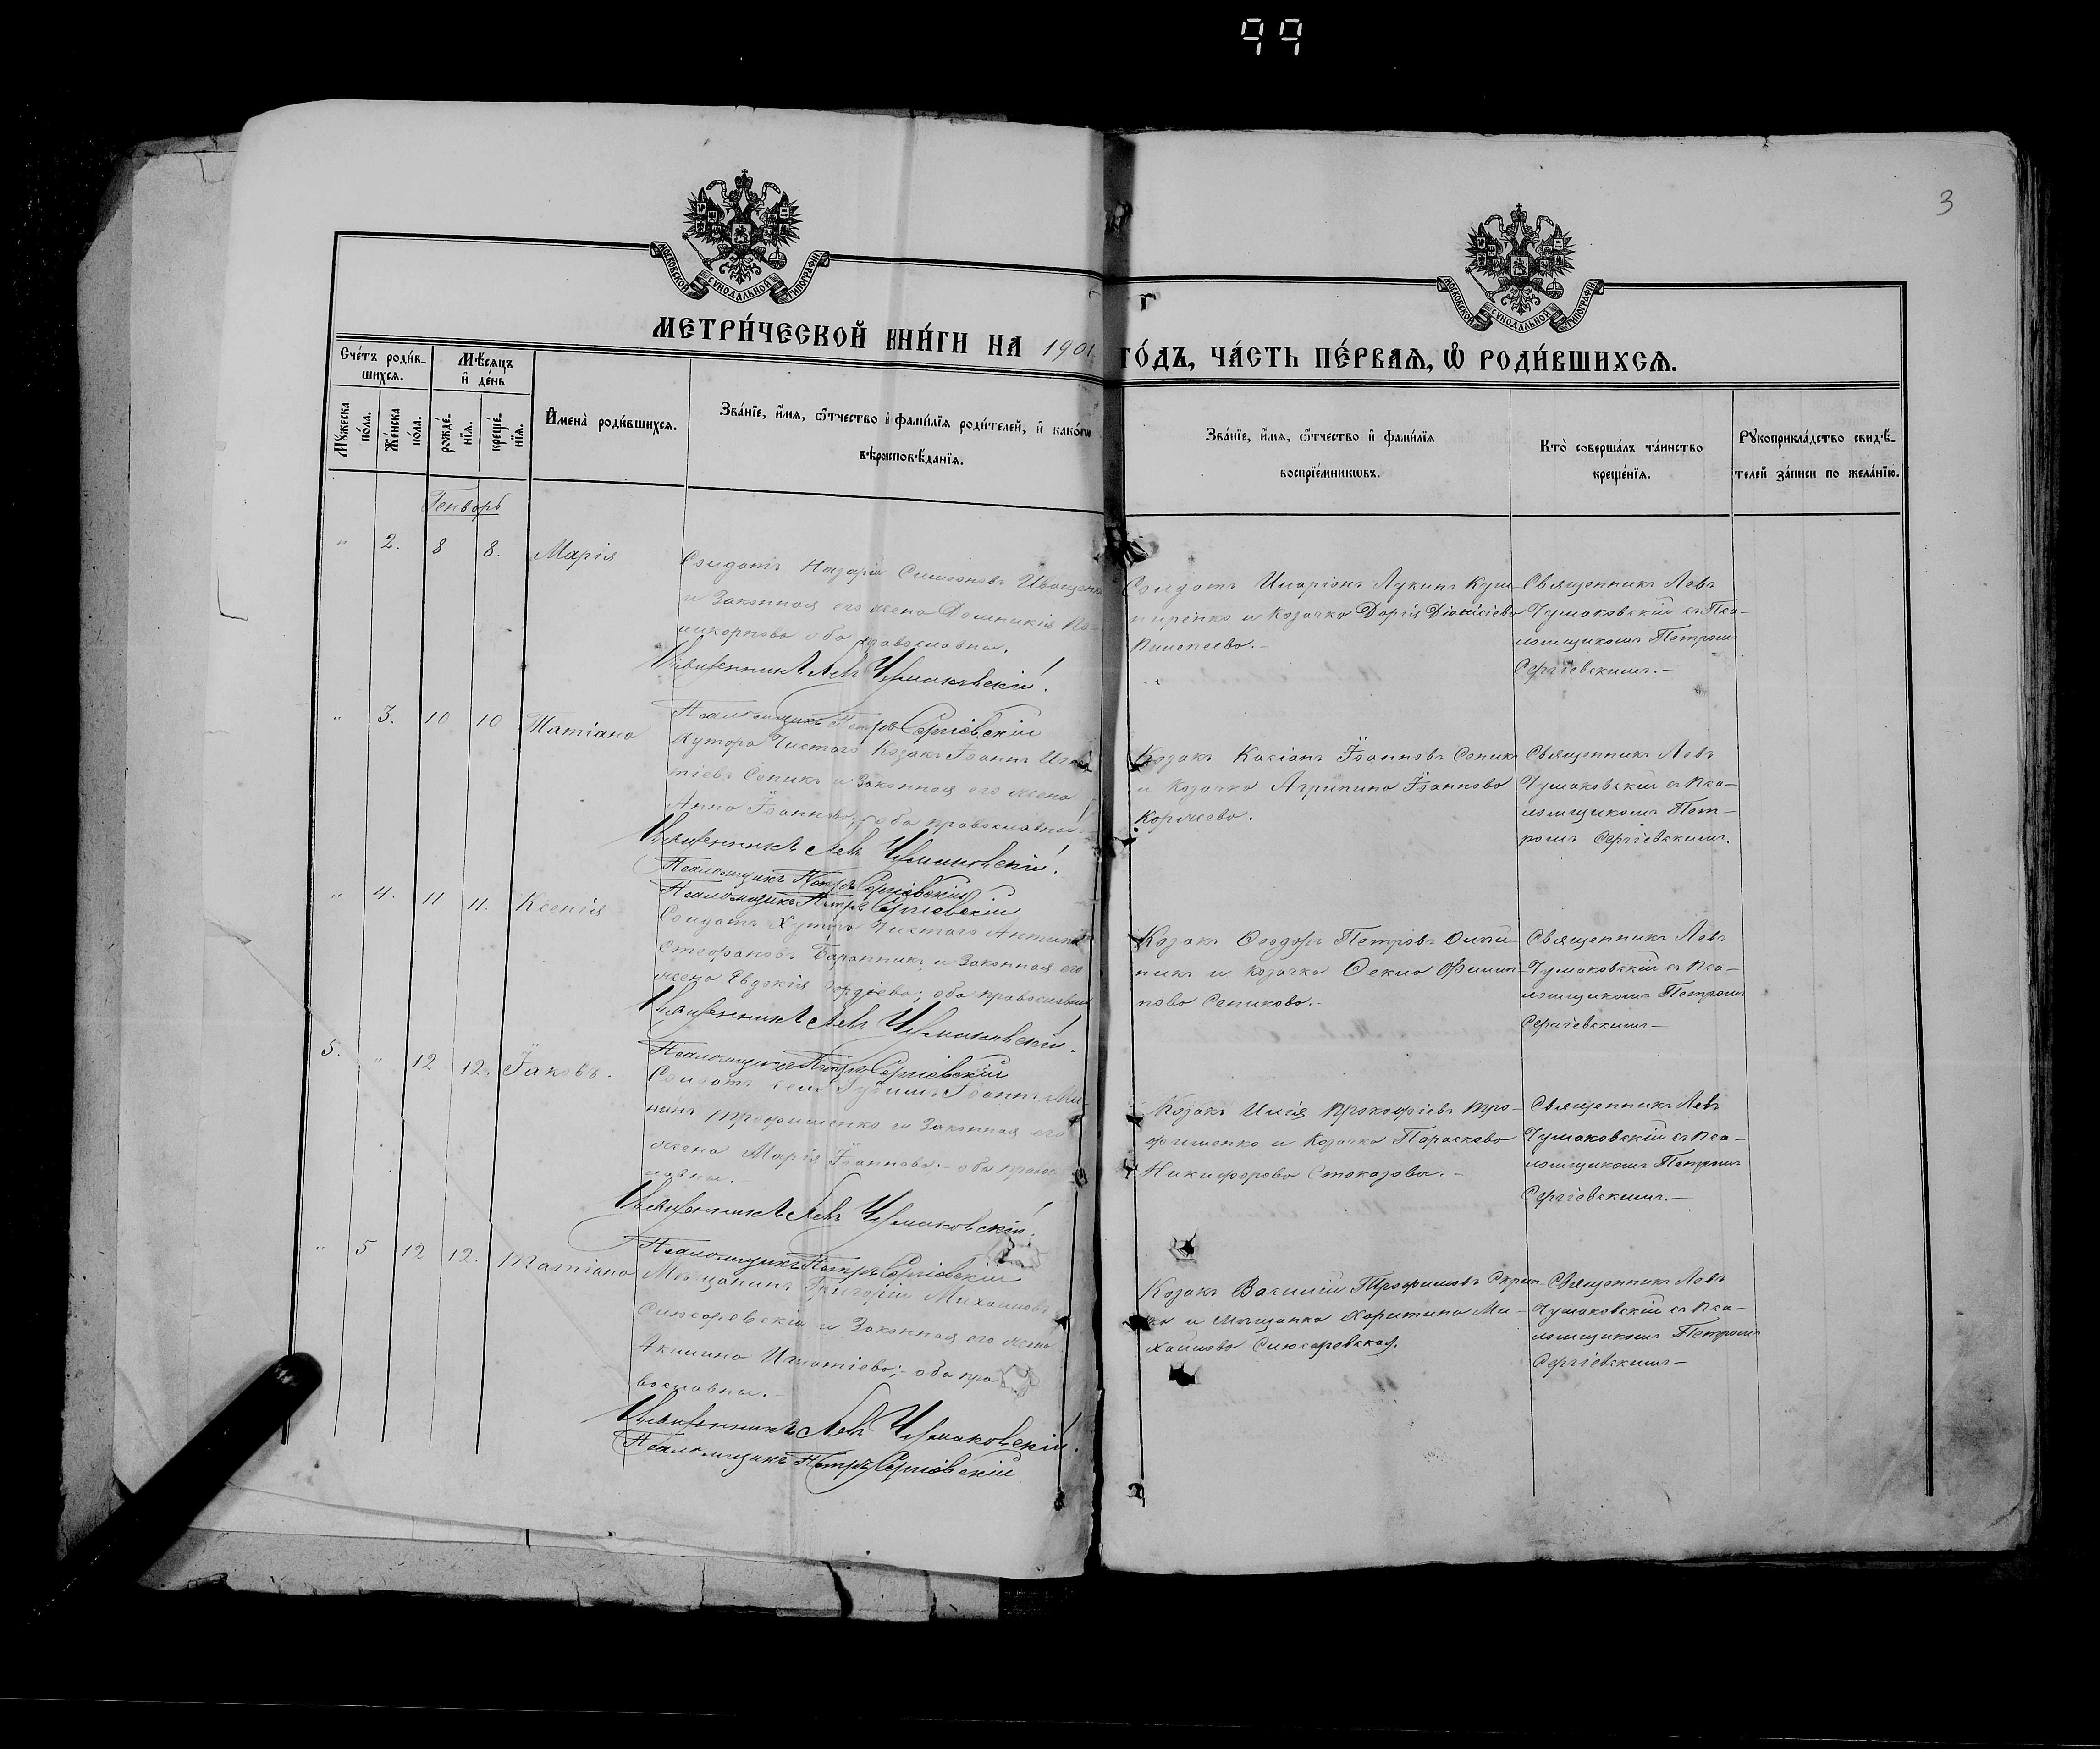 99
3
МОСКОВСКОЙ СѴНОДАЛЬНОЙ ТИПОГРАФІИ
МОСКОВСКОЙ СѴНОДАЛЬНОЙ ТИПОГРАФІИ
МЕТРИ́ЧЕСКОЙ КНИ́ГИ НА 1901 ГО́ДЪ, ЧА́СТЬ ПЕ́РВАѦ, Ѡ҆ РОДИ́ВШИХСѦ.
Сче́тъ роди́в-
шихсѧ.
Мѣ́сяцъ
и҆ де́нь
Мꙋ́жеска
по́ла.
Же́нска
по́ла.
рожде́-
нїѧ.
креще́-
нїѧ.
И҆мена̀ роди́вшихсѧ.
Зва́нїе, и҆́мѧ, ѻ҆́тчество и҆ фами́лїѧ роди́телей, и҆ како́гѡ
вѣроисповѣ́данїѧ.
Зва́нїе, и҆́мѧ, ѻ҆́тчество и҆ фами́лїѧ
воспрїе́мникѡвъ.
Кто̀ соверша́лъ та́инство
креще́нїѧ.
Рꙋкоприкла́дство свидѣ́-
телей за́писи по жела́нїю.
Генворь
" 2. 8 8. Марія
Солдатъ Назарій Симеоновъ Иващенко
и Законная его жена Домникія По-
ликарпова оба православны.
Священникъ Левъ Чумаковскій.
Псаломщикъ Петръ Сергіевскій
Солдатъ Иларіонъ Лукинъ Куш-
ниренко и Козачка Дарія Діонисіева
Священникъ Левъ
Чумаковскій съ Пса-
ломщикомъ Петромъ
Сергіевскимъ.-
" 3. 10 10 Татіана
Хутора Чистаго Козакъ Іоаннъ Игна
тіевъ Сепикъ и Законная его жена
Анна Іоаннова; оба православны.
Священникъ Левъ Чумаковскій.
Псаломщикъ Петръ Сергіевскій
Козакъ Касіанъ Іоанновъ Сепикъ
и Козачка Агрипина Іоаннова
Коржова.
Священникъ Левъ
Чумаковскій съ Пса-
ломщикомъ Пет-
ромъ Сергіевскимъ.
" 4. 11 11. Ксенія
Псаломщикъ Петръ Сергіевскій
Солдатъ Хутора Чистаго Антиній
Стефановъ Баранникъ и Законная его
жена Евдокія Гордіева; оба православны
Священникъ Левъ Чумаковскій.
Псаломщикъ Петръ Сергіевскій
Козакъ Ѳеодоръ Петровъ Олій
никъ и Козачка Ѳекла Филип-
пова Сепикова.-
Священникъ Левъ
Чумаковскій съ Пса-
ломщикомъ Петромъ
Сергіевскимъ-
5. " 12 12. Іаковъ.
Солдатъ Іоаннъ Ми-
нинъ Трофименко и Законная его
жена Марія Іоаннова.- оба правос
лавны.-
Священникъ Левъ Чумаковскій.
Псаломщикъ Петръ Сергіевскій
Козакъ Илія Прокофіевъ Тро-
фименко и Козачка Параскева
Никифорова Стоказова.-
Священникъ Левъ
Чумаковскій съ Пса-
ломщикомъ Петромъ
Сергіевскимъ.-
" 5 12 12. Татіана
Мѣщанинъ Григорій Михаиловъ
Слюсаревскій и Законная его жена
Акилина Игнатіева;- оба пра
вославны.-
Священникъ Левъ Чумаковскій.
Псаломщикъ Петръ Сергіевскій
Козакъ Василій Трофимовъ Скрип-
ка и Мѣщанка Харитина Ми-
хаилова Слюсаревская.
Священникъ Левъ
Чумаковскій съ Пса-
ломщикомъ Петромъ
Сергіевскимъ-